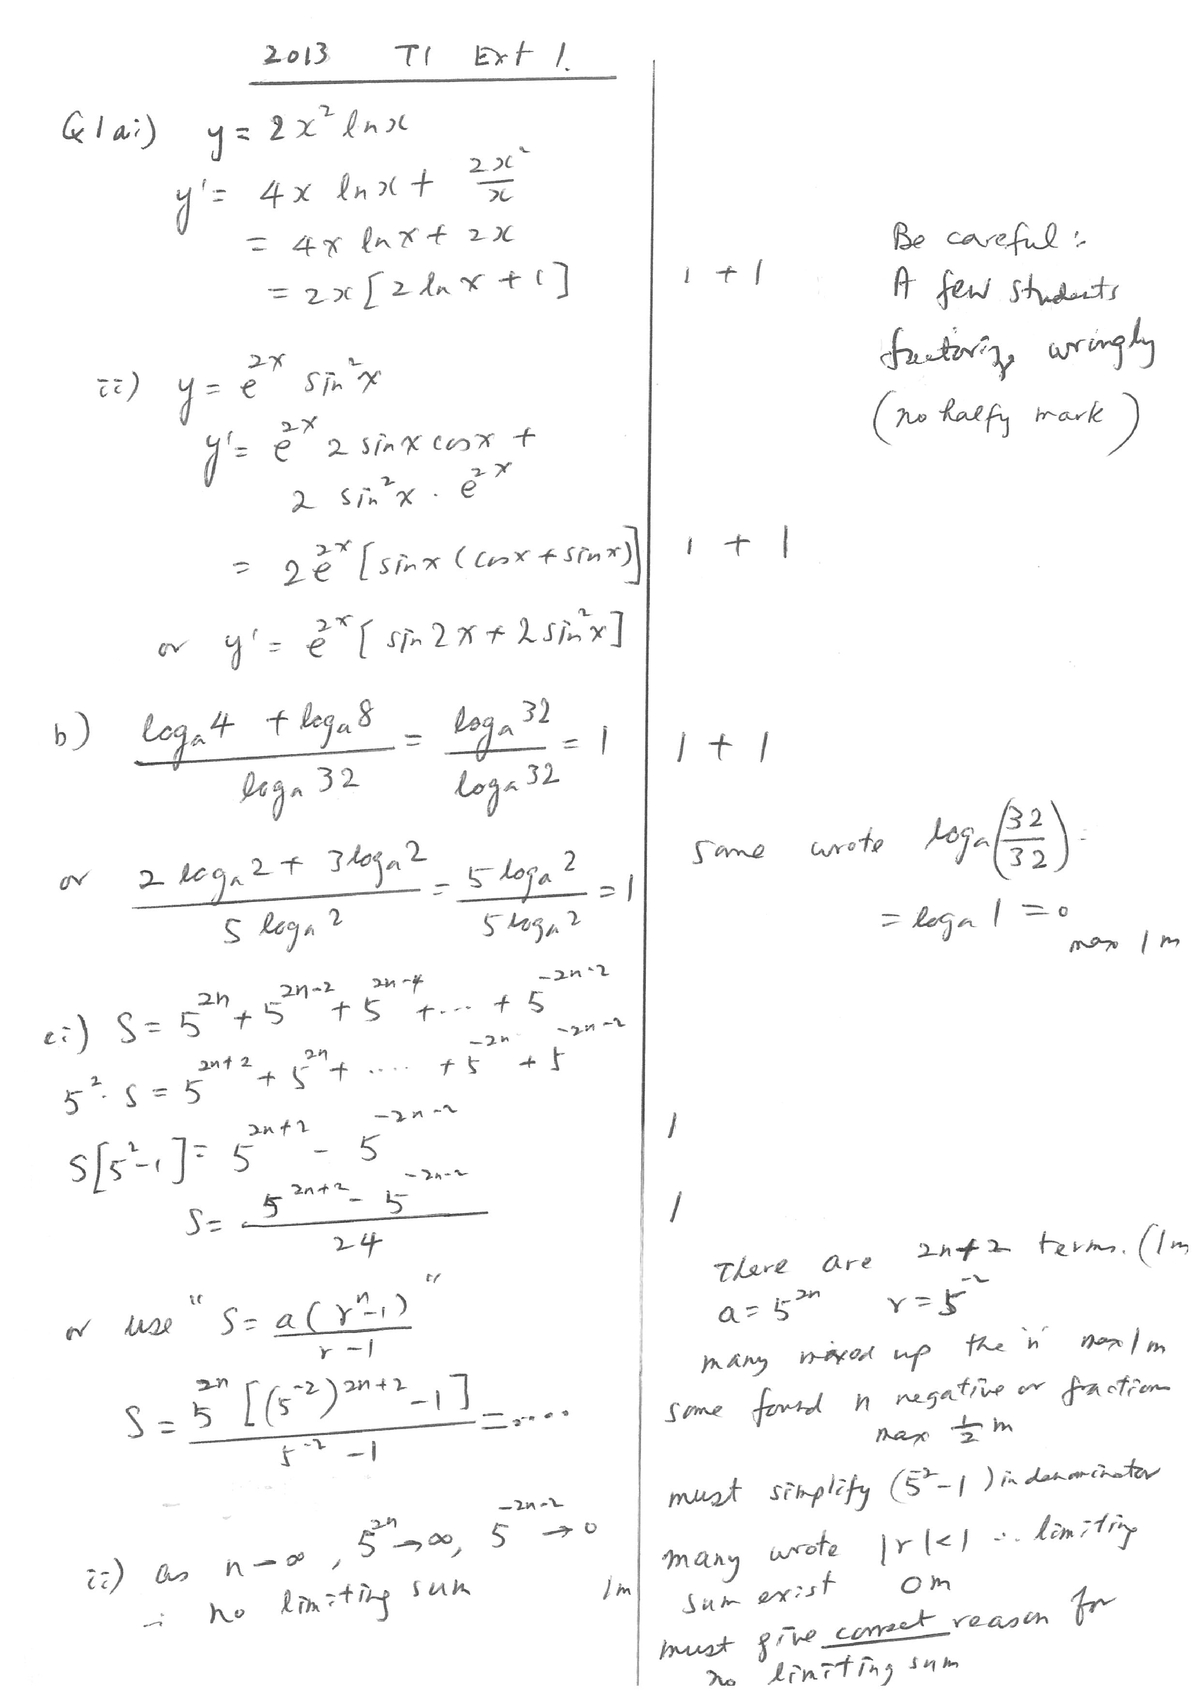 2013 T1 Ext 1.
Q1 ai) y = 2x² ln x
y' = 4x ln x + 2x²/x
= 4x ln x + 2x
= 2x [2 ln x + 1] 1 + 1
Be careful:
A few students
factorize wringly
(no halfy mark)
ii) y = e^{2x} sin²x
y' = e^{2x} 2 sin x cos x +
2 sin²x . e^{2x}
= 2e^{2x} [sin x (cos x + sin x)] 1 + 1
or y' = e^{2x} [sin 2x + 2 sin²x]
b) (logₐ4 + logₐ8)/(logₐ32) = (logₐ32)/(logₐ32) = 1 1 + 1
or (2 logₐ2 + 3 logₐ2)/(5 logₐ2) = (5 logₐ2)/(5 logₐ2) = 1
some wrote logₐ(32/32) =
= logₐ1 = 0
max 1m
ci) S = 5^{2n} + 5^{2n-2} + 5^{2n-4} + .... + 5^{-2n-2}
5². S = 5^{2n+2} + 5^{2n} + .... + 5^{-2n} + 5^{-2n-2}
S[5²-1] = 5^{2n+2} - 5^{-2n-2} 1
S = (5^{2n+2} - 5^{-2n-2})/24 1
or use "S = a(rⁿ-1)/(r-1)"
S = 5^{2n} [(5^{-2})^{2n+2} - 1]/(5^{-2} - 1) = ....
There are 2n+2 terms. (1m
a = 5^{2n} r = 5^{-2}
many mixed up the 'n' max 1m
some found n negative or fraction
max ½ m
must simplify (5^{-2} - 1) in denominator
ii) as n → ∞, 5^{2n} → ∞, 5^{-2n-2} → 0
∴ no limiting sum 1m
many wrote |r|<1 ∴ limiting
sum exist 0m
must give correct reason for
no limiting sum